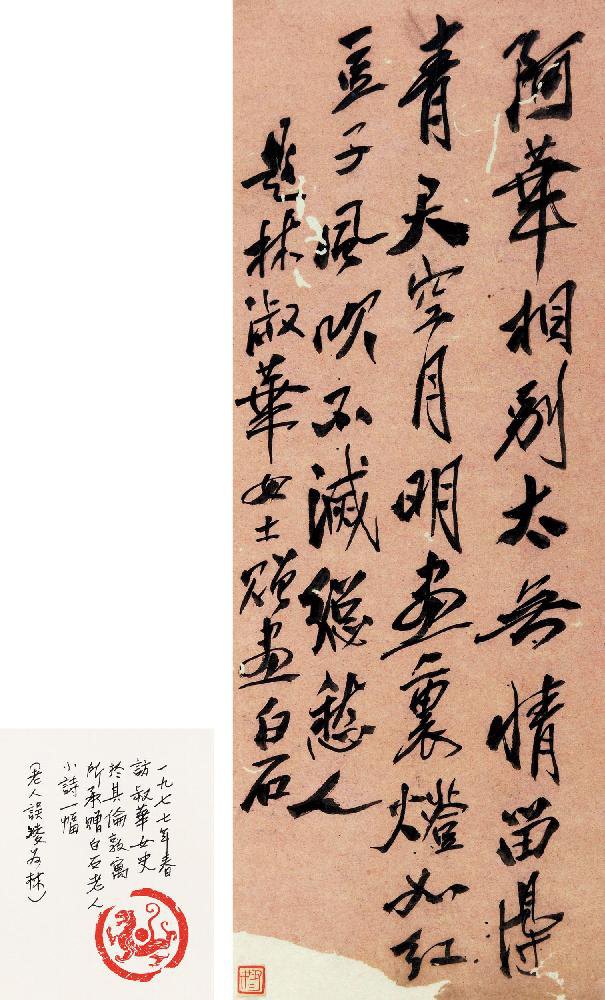 阿華相別太無情留得
青天空月明畫裏燈如紅
豆子風吹不滅總愁人
題林淑華女士贈畫白石
一九七七年春
訪叔華女史
於其倫敦寓
所承贈白石老人
小詩一幅
(老人誤凌为林)